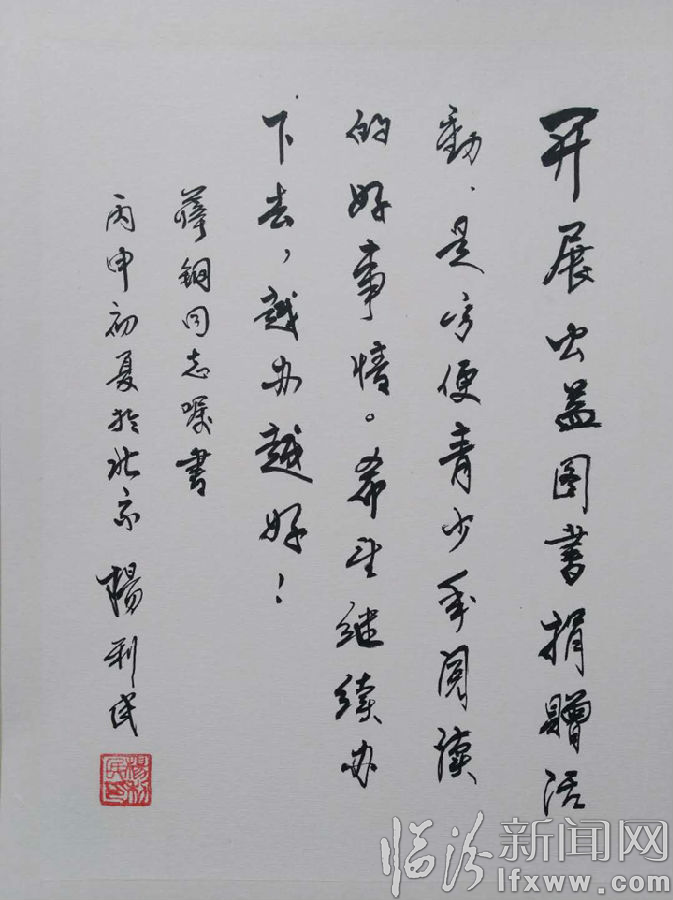 开展公益图書捐贈活
動，是方便青少年阅读
的好事情。希望继续办
下去，越办越好！
同志嘱書
丙申初夏於北京 楊利民
楊利民印
临汾新闻网
lfxww.com